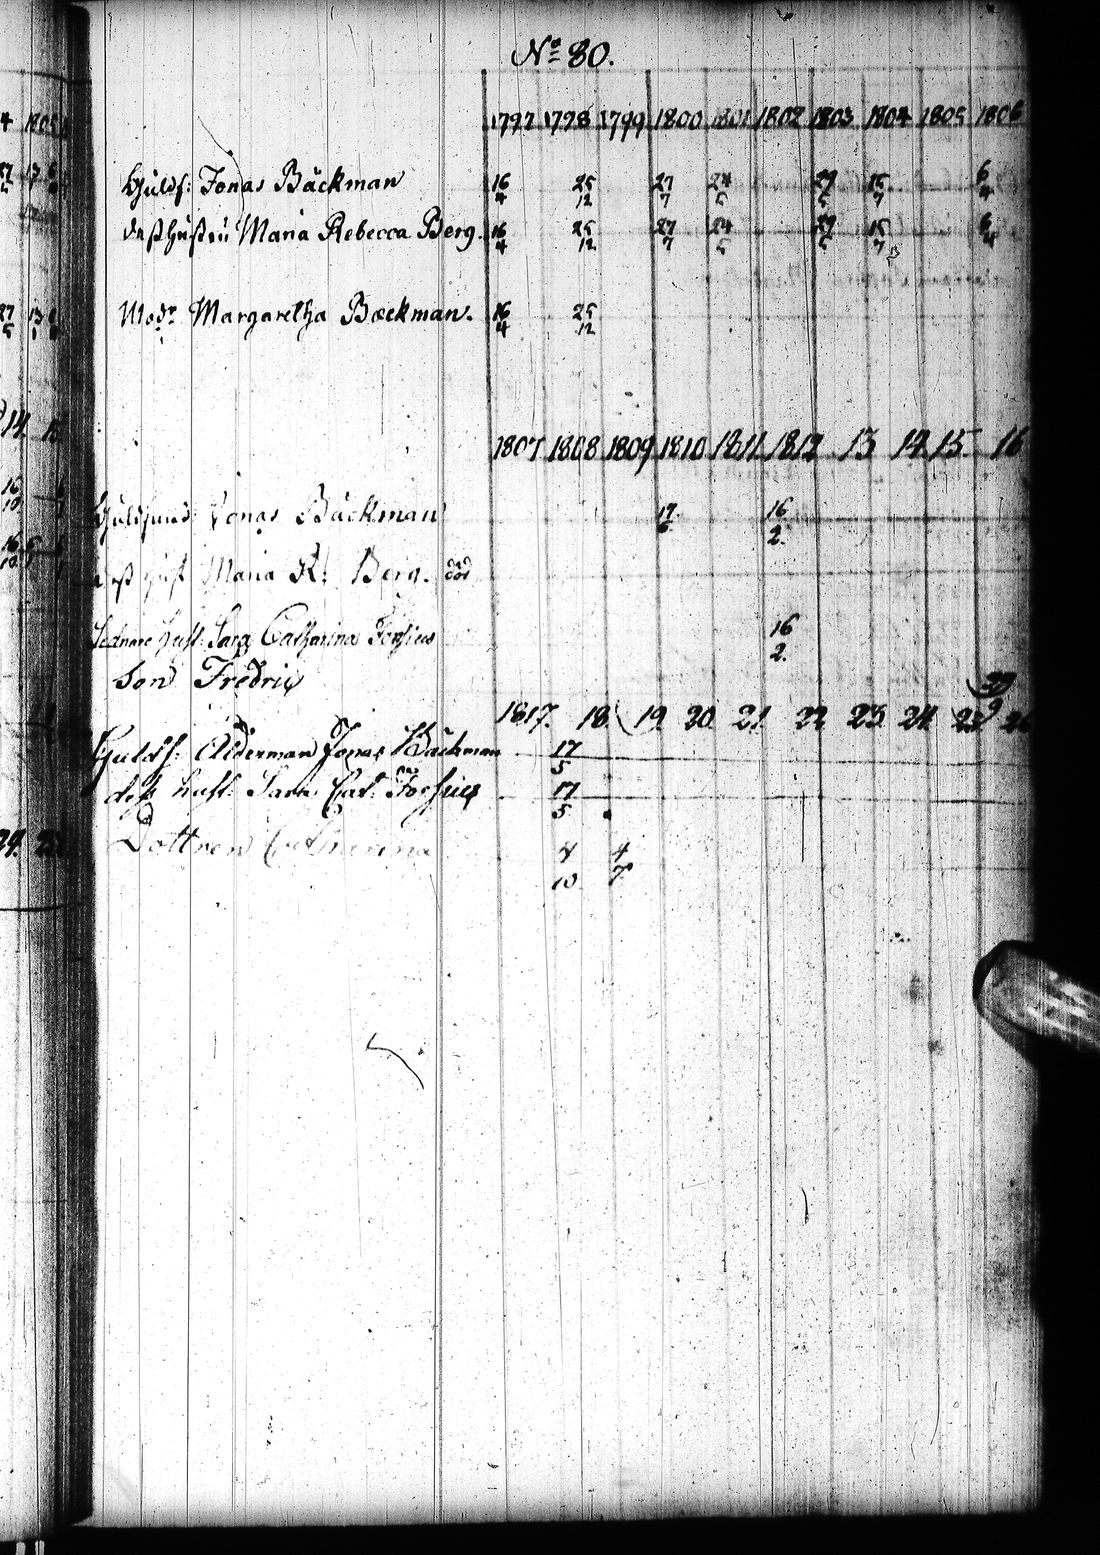 No 80.
1797 1798 1799 1800 1801 1802 1803 1804 1805 1806
Guldf: Jonas Bäckman 16/4 25/12 27/7 24/5 29/5 15/7 6/4
dess hustru Maria Rebecca Berg. 16/4 25/12 27/7 24/5 29/5 15/7 6/4
Modr Margaretha Bæckman. 16/4 25/12
1807 1808 1809 1810 1811 1812 13 14 15 16
Guldsmed Jonas Bäckman 17/6 16/2.
dess hust Maria R: Berg. död
Sednare hust: Sara Catharina Forsius 16/2.
Son Fredric 29/9
1817. 18 19 20 21 22 23 24 25 26
Guldf: Alderman Jonas Bäckman 17/5
dess hust: Sara Cat: Forsius 17/5
Dottren Catharina 4/10 4/7